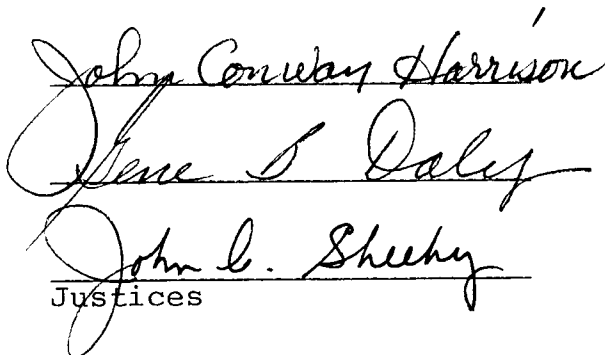 John Conway Harrison
Gene B Daly
John C. Sheehy
Justices